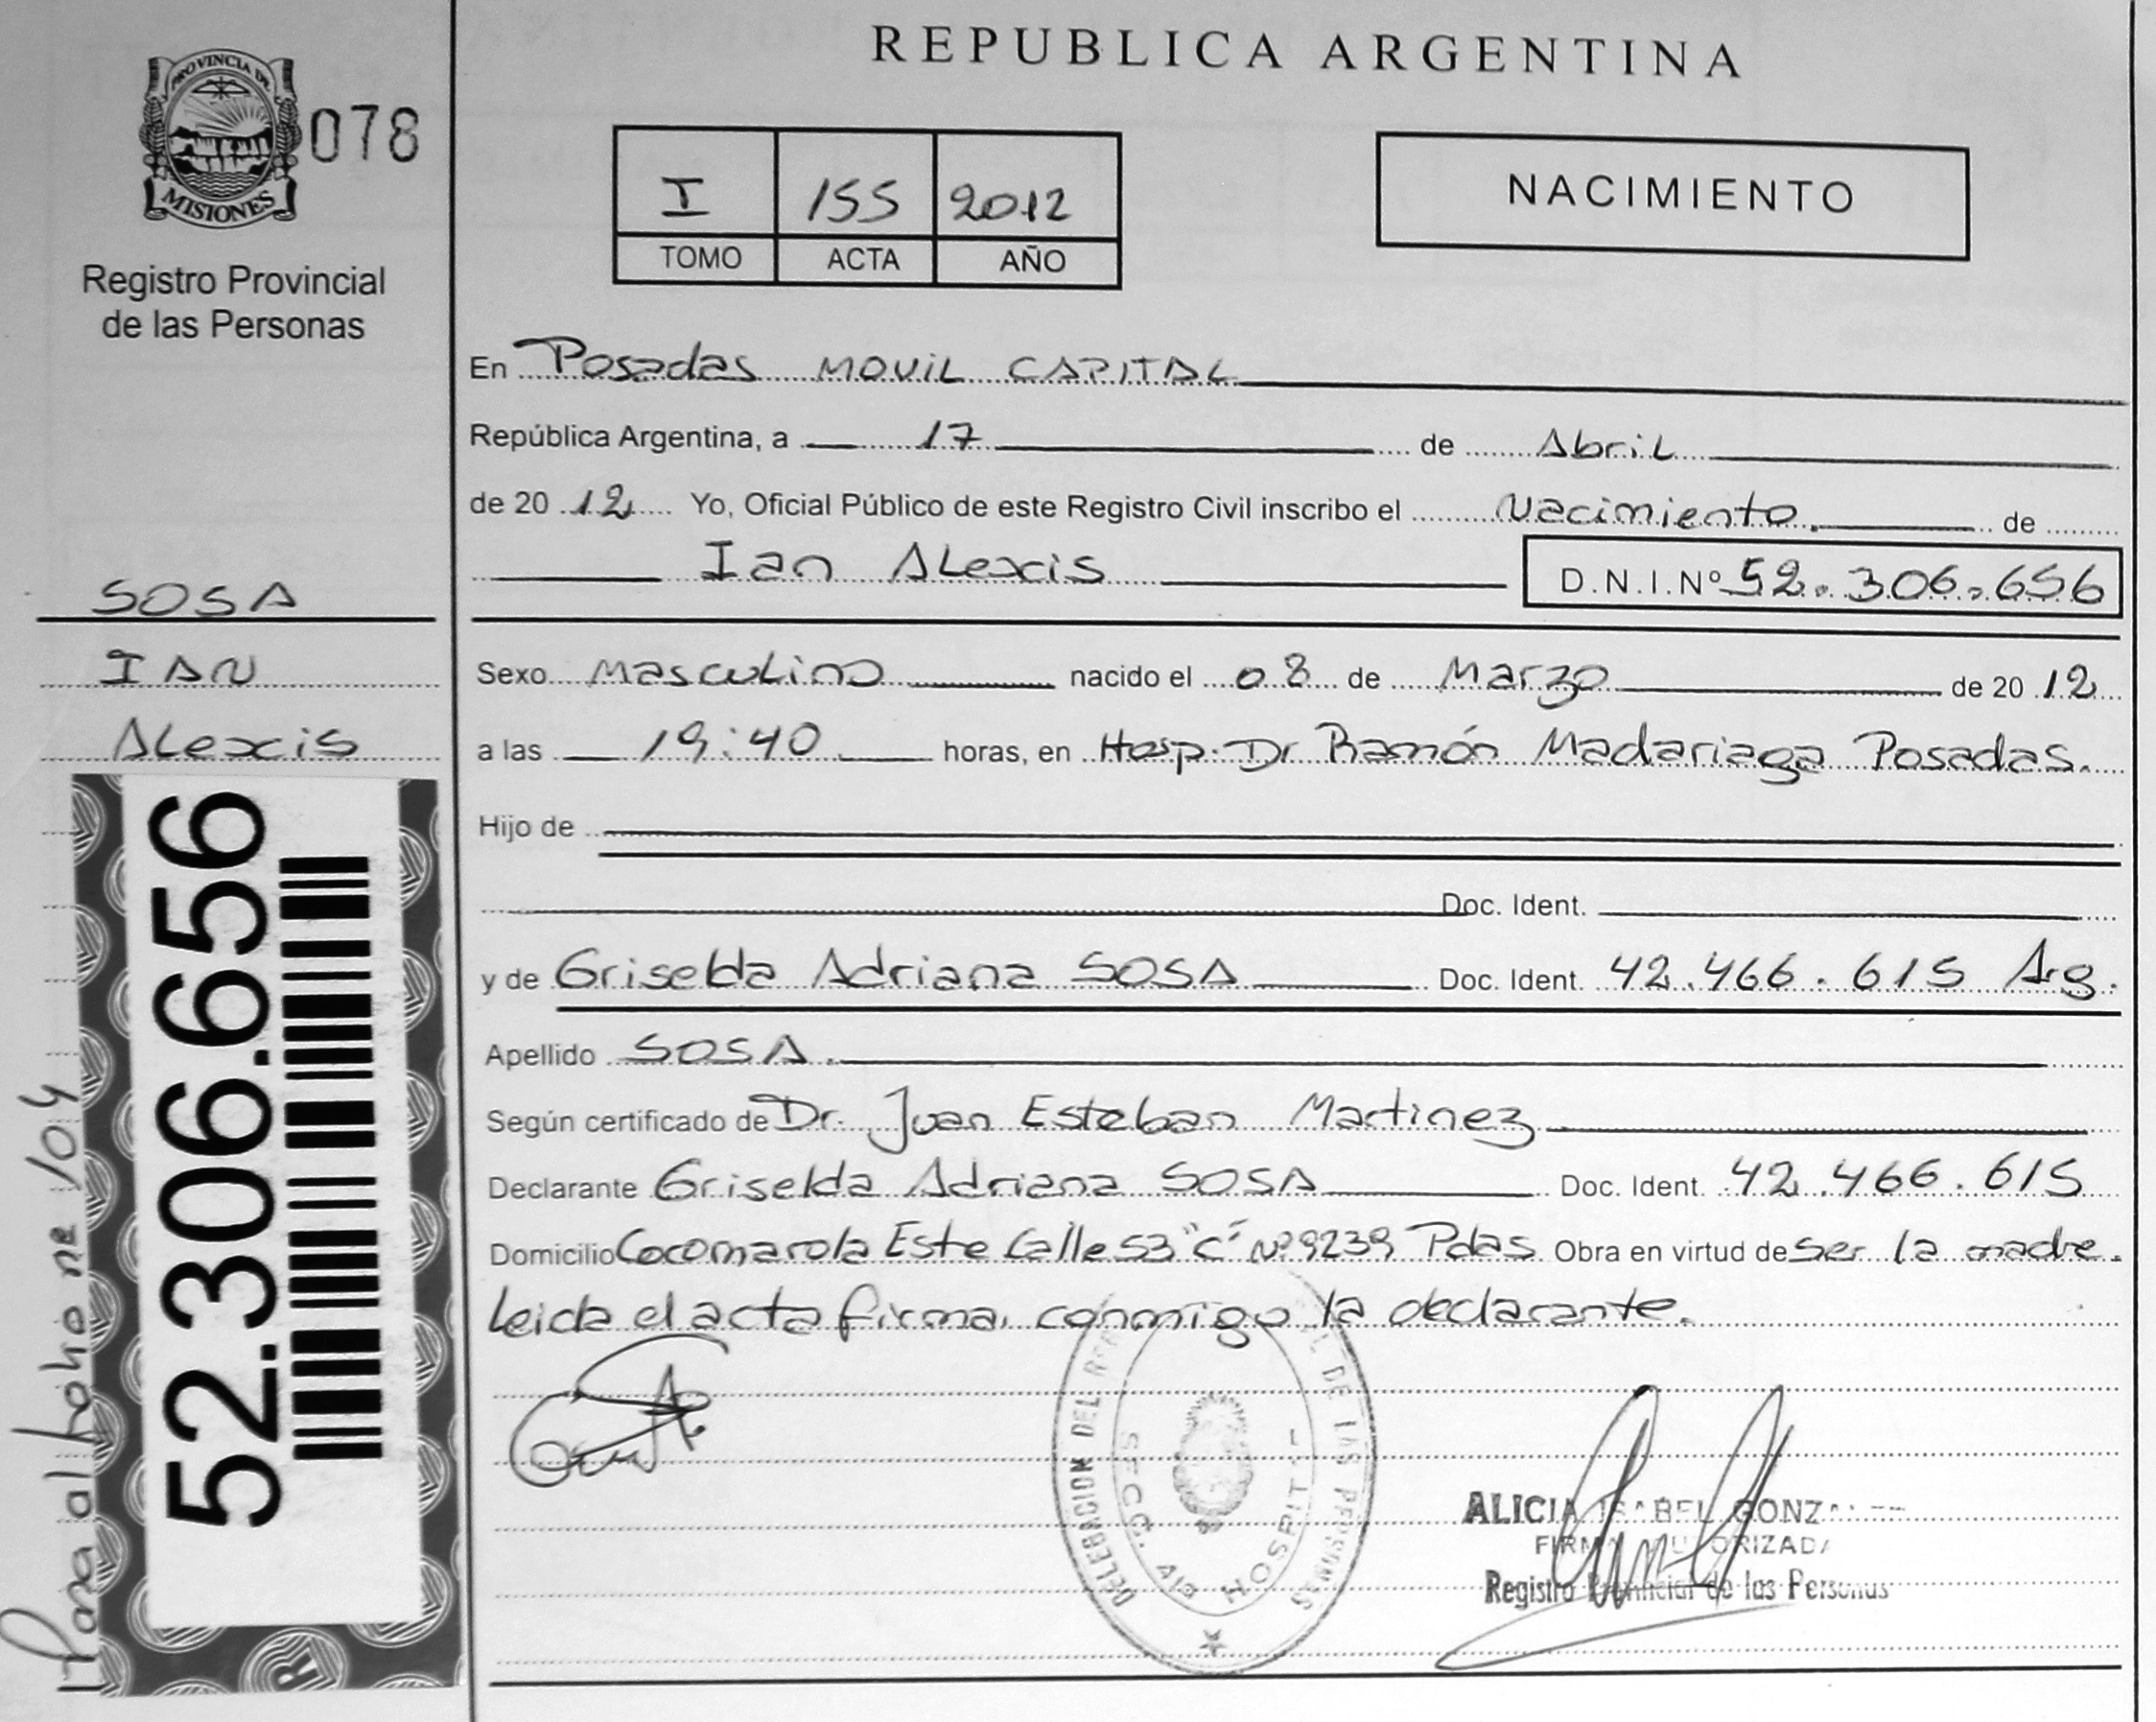 REPUBLICA ARGENTINA
PROVINCIA DE
MISIONES
078
Registro Provincial
de las Personas
I 155 2012
TOMO ACTA AÑO
NACIMIENTO
En Posadas MOVIL CAPITAL
República Argentina, a 17 de Abril
de 20 12 Yo, Oficial Público de este Registro Civil inscribo el Nacimiento. de
Ian Alexis D.N.I.Nº 52.306.656
SOSA
IAN
Alexis
Sexo Masculino nacido el 08 de Marzo de 20 12
a las 19:40 horas, en Hosp. Dr Ramón Madariaga Posadas.
Hijo de
Doc. Ident.
y de Griselda Adriana SOSA Doc. Ident. 42.466.615 Arg.
Apellido SOSA.
Según certificado de Dr. Juan Esteban Martinez
Declarante Griselda Adriana SOSA Doc. Ident. 42.466.615
Domicilio Cocomarola Este Calle 53 "C" Nº 9239 Pdas. Obra en virtud de ser la madre.
Leida el acta firma, conmigo la declarante.
52.306.656
Pasa al folio nº 104
DELEGACION DEL DE LAS PERSONAS
SECC. 4ta HOSPIT
ALICIA ISABEL GONZALEZ
FIRMA AUTORIZADA
Registro Provincial de las Personas
R